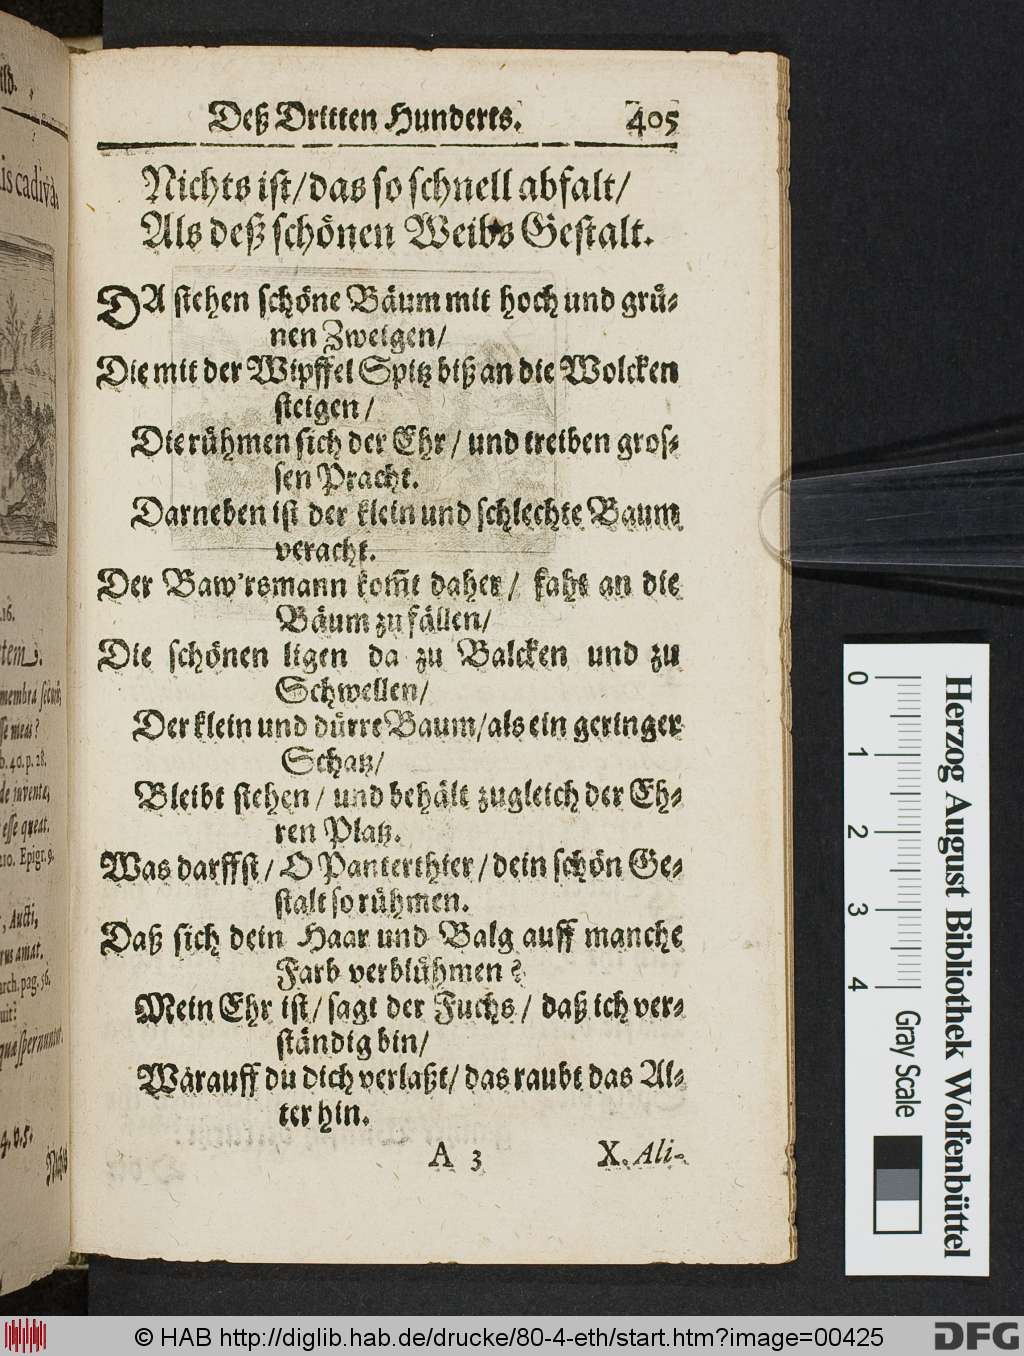 Deß Dritten Hunderts. 405
Nichts ist/das so schnell abfalt/
Als deß schönen Weibs Gestalt.
DA stehen schöne Bäum mit hoch und grü-
nen Zweigen/
Die mit der Wipffel Spitz biß an die Wolcken
steigen/
Die rühmen sich der Ehr/ und treiben gros-
sen Pracht.
Darneben ist der klein und schlechte Baum
veracht.
Der Baw'rsmann kom̃t daher/ faht an die
Bäum zu fällen/
Die schönen ligen da zu Balcken und zu
Schwellen/
Der klein und dürre Baum/als ein geringer
Schatz/
Bleibt stehen/ und behält zugleich der Eh-
ren Platz.
Was darffst/ O Panterthier/ dein schön Ge-
stalt so rühmen.
Daß sich dein Haar und Balg auff manche
Farb verblühmen?
Mein Ehr ist/ sagt der Fuchs/ daß ich ver-
ständig bin/
Warauff du dich verlaßt/ das raubt das Al-
ter hin.
A 3 X. Ali-
is cadivâ,
.16.
membra secuit,
se meas?
b. 40. p. 28.
de invente,
esse queat.
210. Epigr. 9.
, Aucti,
rus amat.
arch. pag. 56.
uit?
qua spernunt
4. v. 5.
0 1 2 3 4
Herzog August Bibliothek Wolfenbüttel
Gray Scale
© HAB http://diglib.hab.de/drucke/80-4-eth/start.htm?image=00425
DFG